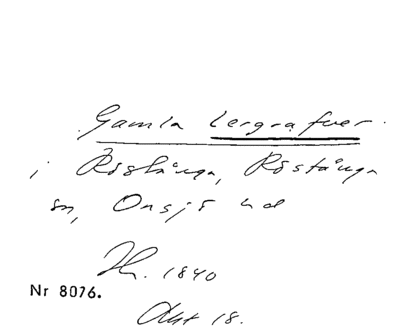 Gamla lergrafver
i Röstånga, Röstånga
sn, Onsjö hd
H. 1840
Nr 8076.
Akt 18.